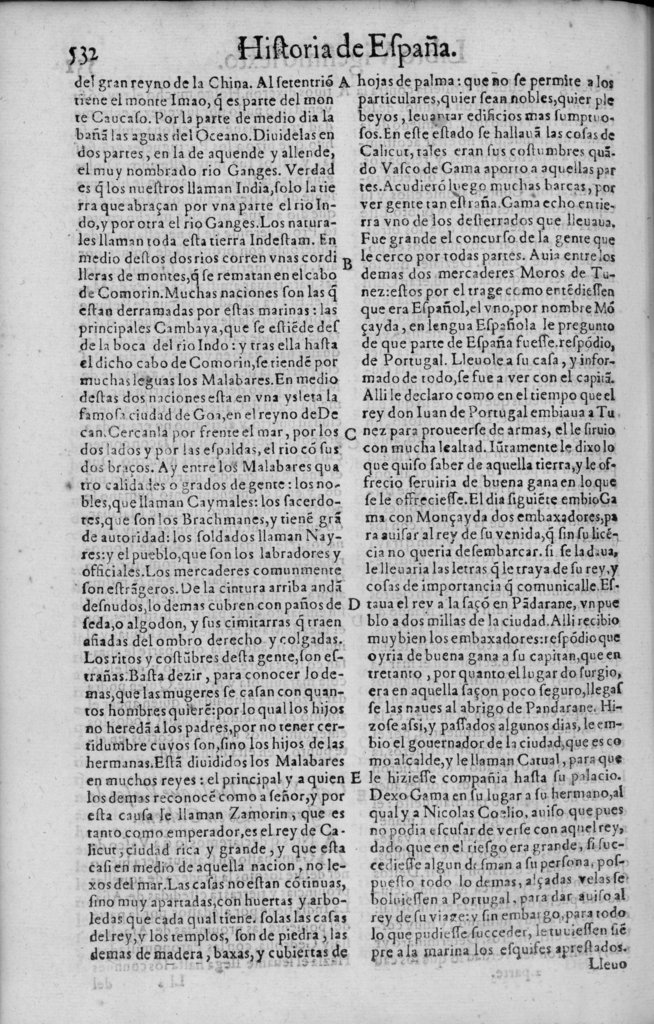 532
Historia de España.
del gran reyno de la China. Al setentrió
tiene el monte Imao, q̃ es parte del mon
te Caucaso. Por la parte de medio dia la
bañã las aguas del Oceano. Diuidelas en
dos partes, en la de aquende y allende,
el muy nombrado rio Ganges. Verdad
es q̃ los nuestros llaman India, solo la tie
rra que abraçan por vna parte el rio In-
do, y por otra el rio Ganges. Los natura-
les llaman toda esta tierra Indestam. En
medio destos dos rios corren vnas cordi
lleras de montes, q̃ se rematan en el cabo
de Comorin. Muchas naciones son las q̃
estan derramadas por estas marinas: las
principales Cambaya, que se estiẽde des
de la boca del rio Indo: y tras ella hasta
el dicho cabo de Comorin, se tiendẽ por
muchas leguas los Malabares. En medio
destas dos naciones esta en vna ysleta la
famosa ciudad de Goa, en el reyno de De
can. Cercanla por frente el mar, por los
dos lados y por las espaldas, el rio cõ sus
dos braços. Ay entre los Malabares qua
tro calidades o grados de gente: los no-
bles, que llaman Caymales: los sacerdo-
tes, que son los Brachmanes, y tienẽ grã
de autoridad: los soldados llaman Nay-
res: y el pueblo, que son los labradores y
officiales. Los mercaderes comunmente
son estrãgeros. De la cintura arriba andã
desnudos, lo demas cubren con paños de
seda, o algodon, y sus cimitarras q̃ traen
añadas del ombro derecho y colgadas.
Los ritos y costũbres desta gente, son es-
trañas. Basta dezir, para conocer lo de-
mas, que las mugeres se casan con quan-
tos hombres quierẽ: por lo qual los hijos
no heredã a los padres, por no tener cer-
tidumbre cuyos son, sino los hijos de las
hermanas. Estã diuididos los Malabares
en muchos reyes: el principal y a quien
los demas reconocẽ como a señor, y por
esta causa le llaman Zamorin, que es
tanto como emperador, es el rey de Ca-
licut, ciudad rica y grande, y que esta
casi en medio de aquella nacion, no le-
xos del mar. Las casas no estan cõtinuas,
sino muy apartadas, con huertas y arbo-
ledas que cada qual tiene. solas las casas
del rey, y los templos, son de piedra, las
demas de madera, baxas, y cubiertas de
A
B
C
D
E
hojas de palma: que no se permite a los
particulares, quier sean nobles, quier ple
beyos, leuantar edificios mas sumptuo-
sos. En este estado se hallauã las cosas de
Calicut, tales eran sus costumbres quã-
do Vasco de Gama aporto a aquellas par
tes. Acudierõ luego muchas barcas, por
ver gente tan estraña. Gama echo en tie-
rra vno de los desterrados que lleuaua.
Fue grande el concurso de la gente que
le cerco por todas partes. Auia entre los
demas dos mercaderes Moros de Tu-
nez: estos por el trage como entẽdiessen
que era Español, el vno, por nombre Mõ
çayda, en lengua Española le pregunto
de que parte de España fuesse. respõdio,
de Portugal. Lleuole a su casa, y infor-
mado de todo, se fue a ver con el capitã.
Alli le declaro como en el tiempo que el
rey don Iuan de Portugal embiaua a Tu
nez para proueerse de armas, el le siruio
con mucha lealtad. Iũtamente le dixo lo
que quiso saber de aquella tierra, y le of-
frecio seruiria de buena gana en lo que
se le offreciesse. El dia siguiẽte embio Ga
ma con Monçayda dos embaxadores, pa
ra auisar al rey de su venida, q̃ sin su licẽ-
cia no queria desembarcar. si se la daua,
le lleuaria las letras q̃ le traya de su rey, y
cosas de importancia q̃ comunicalle. Es-
taua el rey a la saçõ en Pãdarane, vn pue
blo a dos millas de la ciudad. Alli recibio
muy bien los embaxadores: respõdio que
oyria de buena gana a su capitan, que en
tretanto, por quanto el lugar do surgio,
era en aquella saçon poco seguro, llegas
se las naues al abrigo de Pandarane. Hi-
zose assi, y passados algunos dias, le em-
bio el gouernador de la ciudad, que es co
mo alcalde, y le llaman Catual, para que
le hiziesse compañia hasta su palacio.
Dexo Gama en su lugar a su hermano, al
qual y a Nicolas Coelio, auiso que pues
no podia escusar de verse con aquel rey,
dado que en el riesgo era grande, si suc-
cediesse algun desman a su persona, pos-
puesto todo lo demas, alçadas velas se
boluiessen a Portugal, para dar auiso al
rey de su viage: y sin embargo, para todo
lo que pudiesse succeder, le tuuiessen siẽ
pre a la marina los esquifes aprestados.
Lleuo